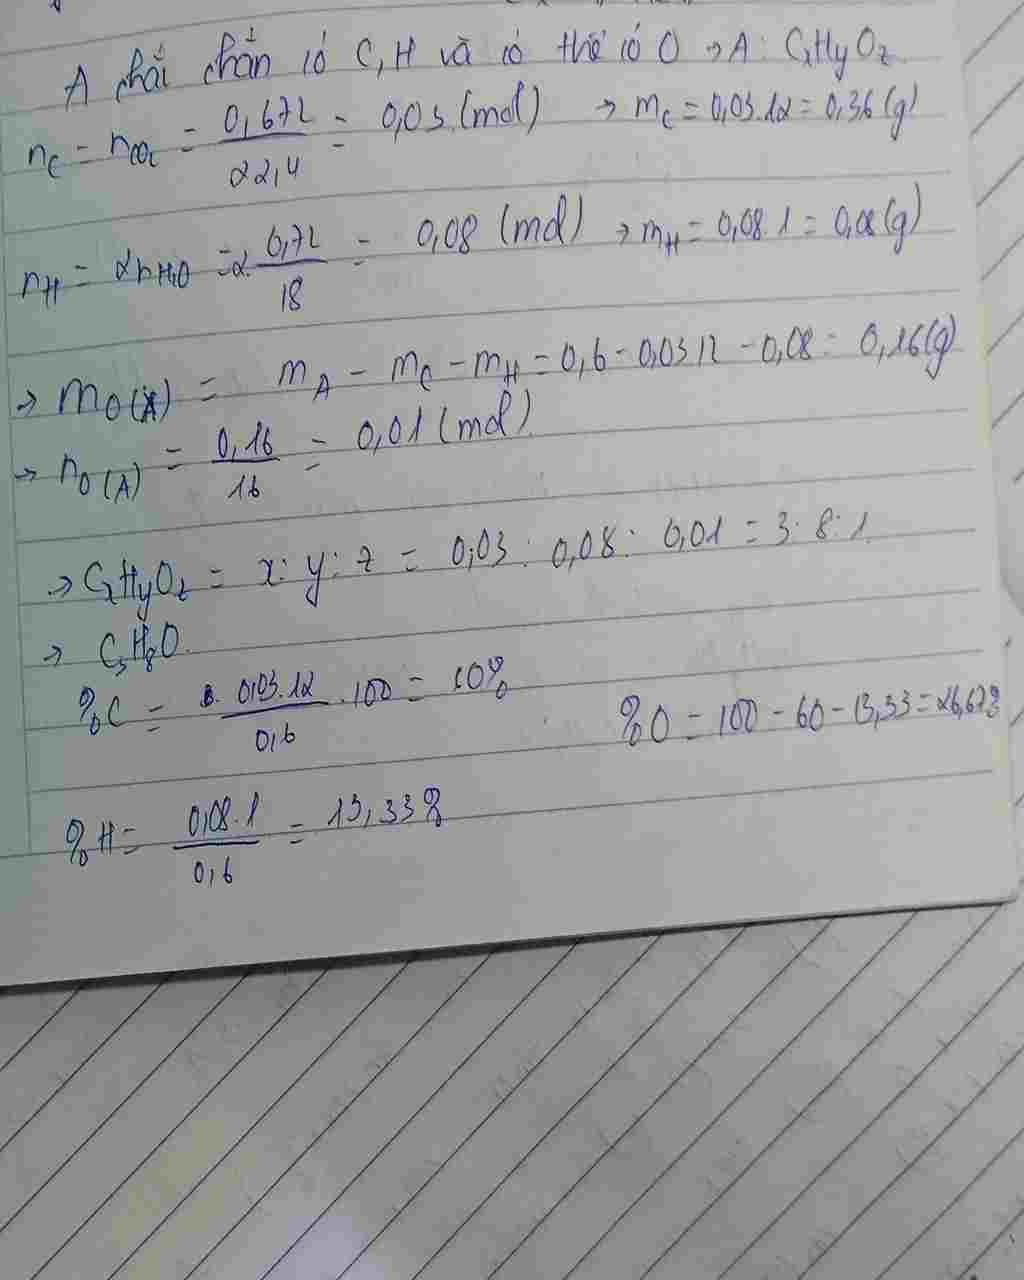 A chắc chắn có C, H và có thể có O → A: CxHyOz
nC = nCO2 = 0,672/22,4 = 0,03 (mol) → mC = 0,03.12 = 0,36 (g)
nH = 2nH2O = 2. 0,72/18 = 0,08 (mol) → mH = 0,08.1 = 0,08 (g)
→ mO(A) = mA - mC - mH = 0,6 - 0,03.12 - 0,08 = 0,16 (g)
→ nO(A) = 0,16/16 = 0,01 (mol)
→ CxHyOz = x : y : z = 0,03 : 0,08 : 0,01 = 3 : 8 : 1
→ C3H8O.
%C = 0,03.12/0,6 .100 = 60%
%O = 100 - 60 - 13,33 = 26,67%
%H = 0,08.1/0,6 = 13,33%